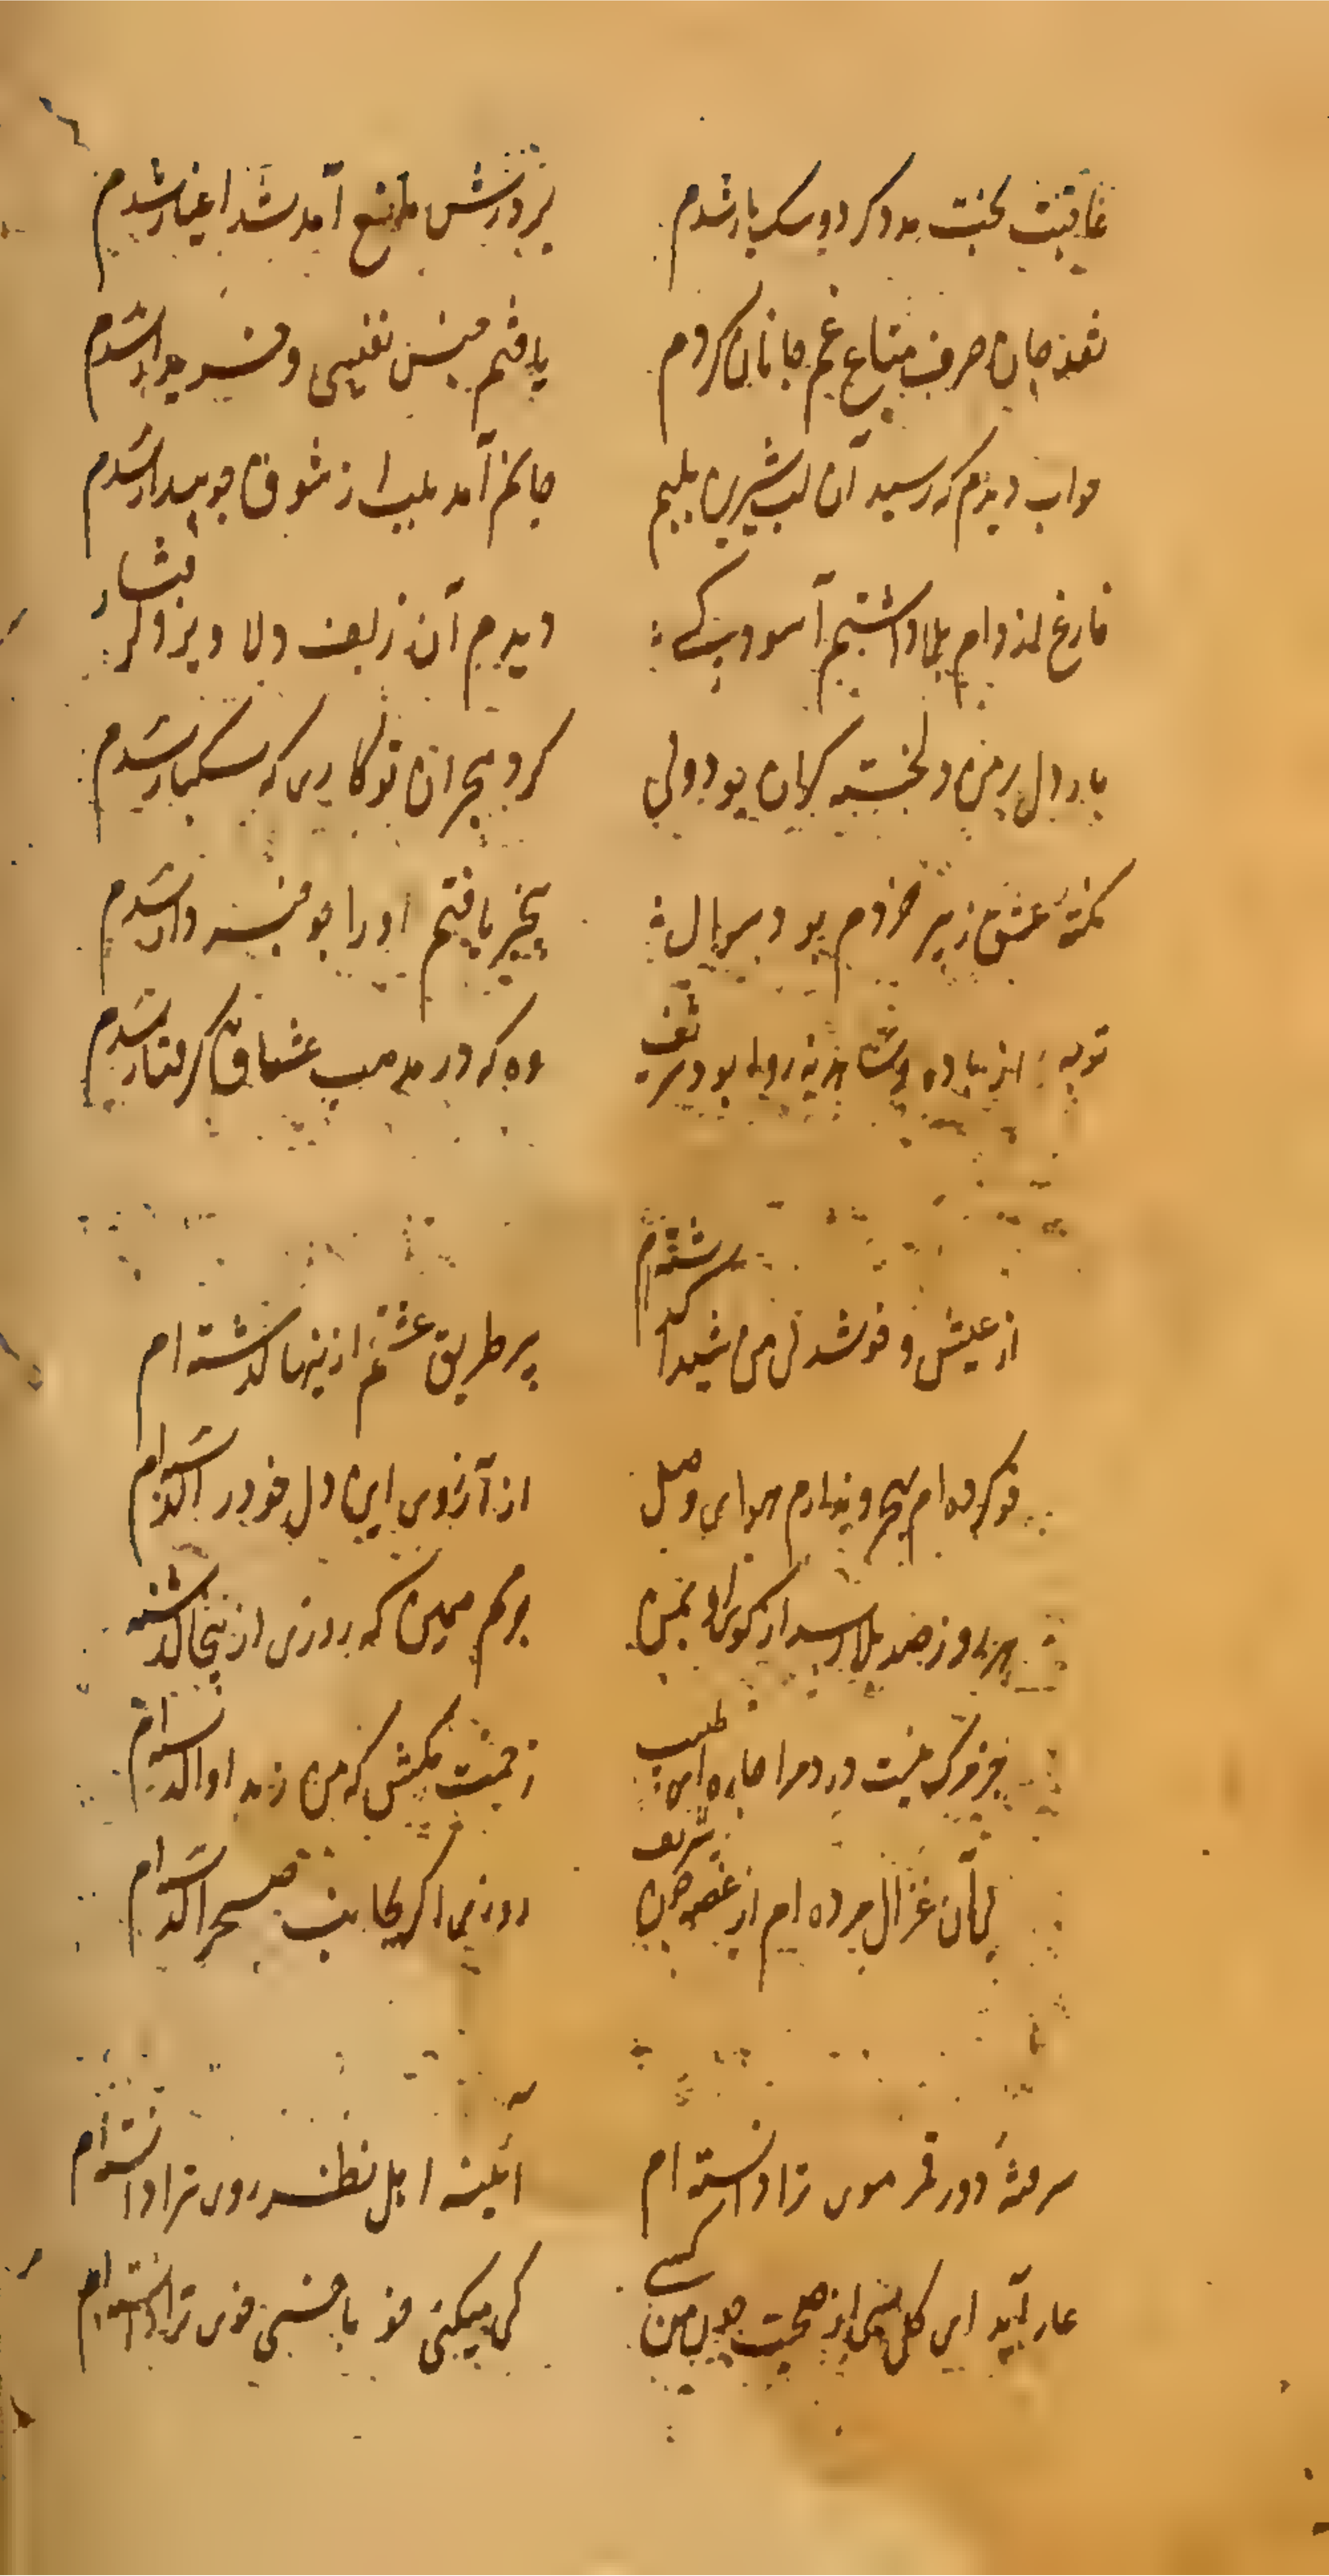 عاقبت بخت مدد کرد و سک یار شدم
بر درش مانع آمد شد اغیار شدم
نقد جان صرف متاع غم جانان کردم
یافتم جنس نفیسی و خریدار شدم
خواب دیدم که رسید آن لب شیرین بلبم
جانم آمد بلب از شوق چو بیدار شدم
فارغ از دام بلا داشتم آسودگی
دیدم آن زلف دلاویز و گرفتار
بار دل بر من دلخسته گران بود ولی
کرد هجران تو کاری که سبکبار شدم
نکته عشق ز پیر خردم بود سوال
بیخبر یافتم او را چو خبردار شدم
توبه از باده و شاهد نه روا بود شریف
وه که در مذهب عشاق گرفتار شدم
از عیش و خوشدلی من شیدا گذشته ام
بر طریق عشقم ازینها گذشته ام
خو کرده ام بهجر و ندارم هوای وصل
از آرزوی این دل خود را گذشته ام
هر روز صد بلا رسد از کوی او بمن
جرمم همین که روزی ازینجا گذشته
جز مرگ نیست درد مرا چاره ای طبیب
زحمت مکش که من ز مداوا گذشته ام
بی آن غزال مرده ام از غصه چون شریف
روزی اگر بجانب صحرا گذشته ام
سرفتنه دور قمر موی ترا دانسته ام
آئینه اهل نظر روی ترا دانسته ام
عار آید ای گل از صحبت چون من کسی
کی میکنی خو با خسی خوی ترا دانسته ام